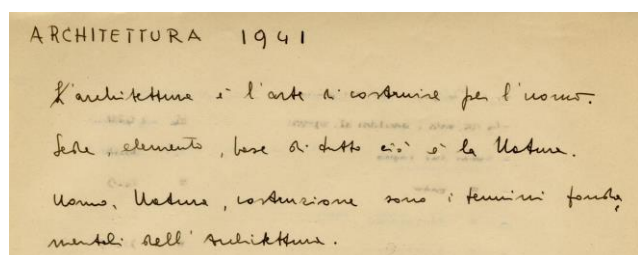 ARCHITETTURA 1941
L'architettura è l'arte di costruire per l'uomo.
Sede, elemento, base di tutto ciò è la Natura.
Uomo, Natura, costruzione sono i termini fonda,
mentali dell'Architettura.